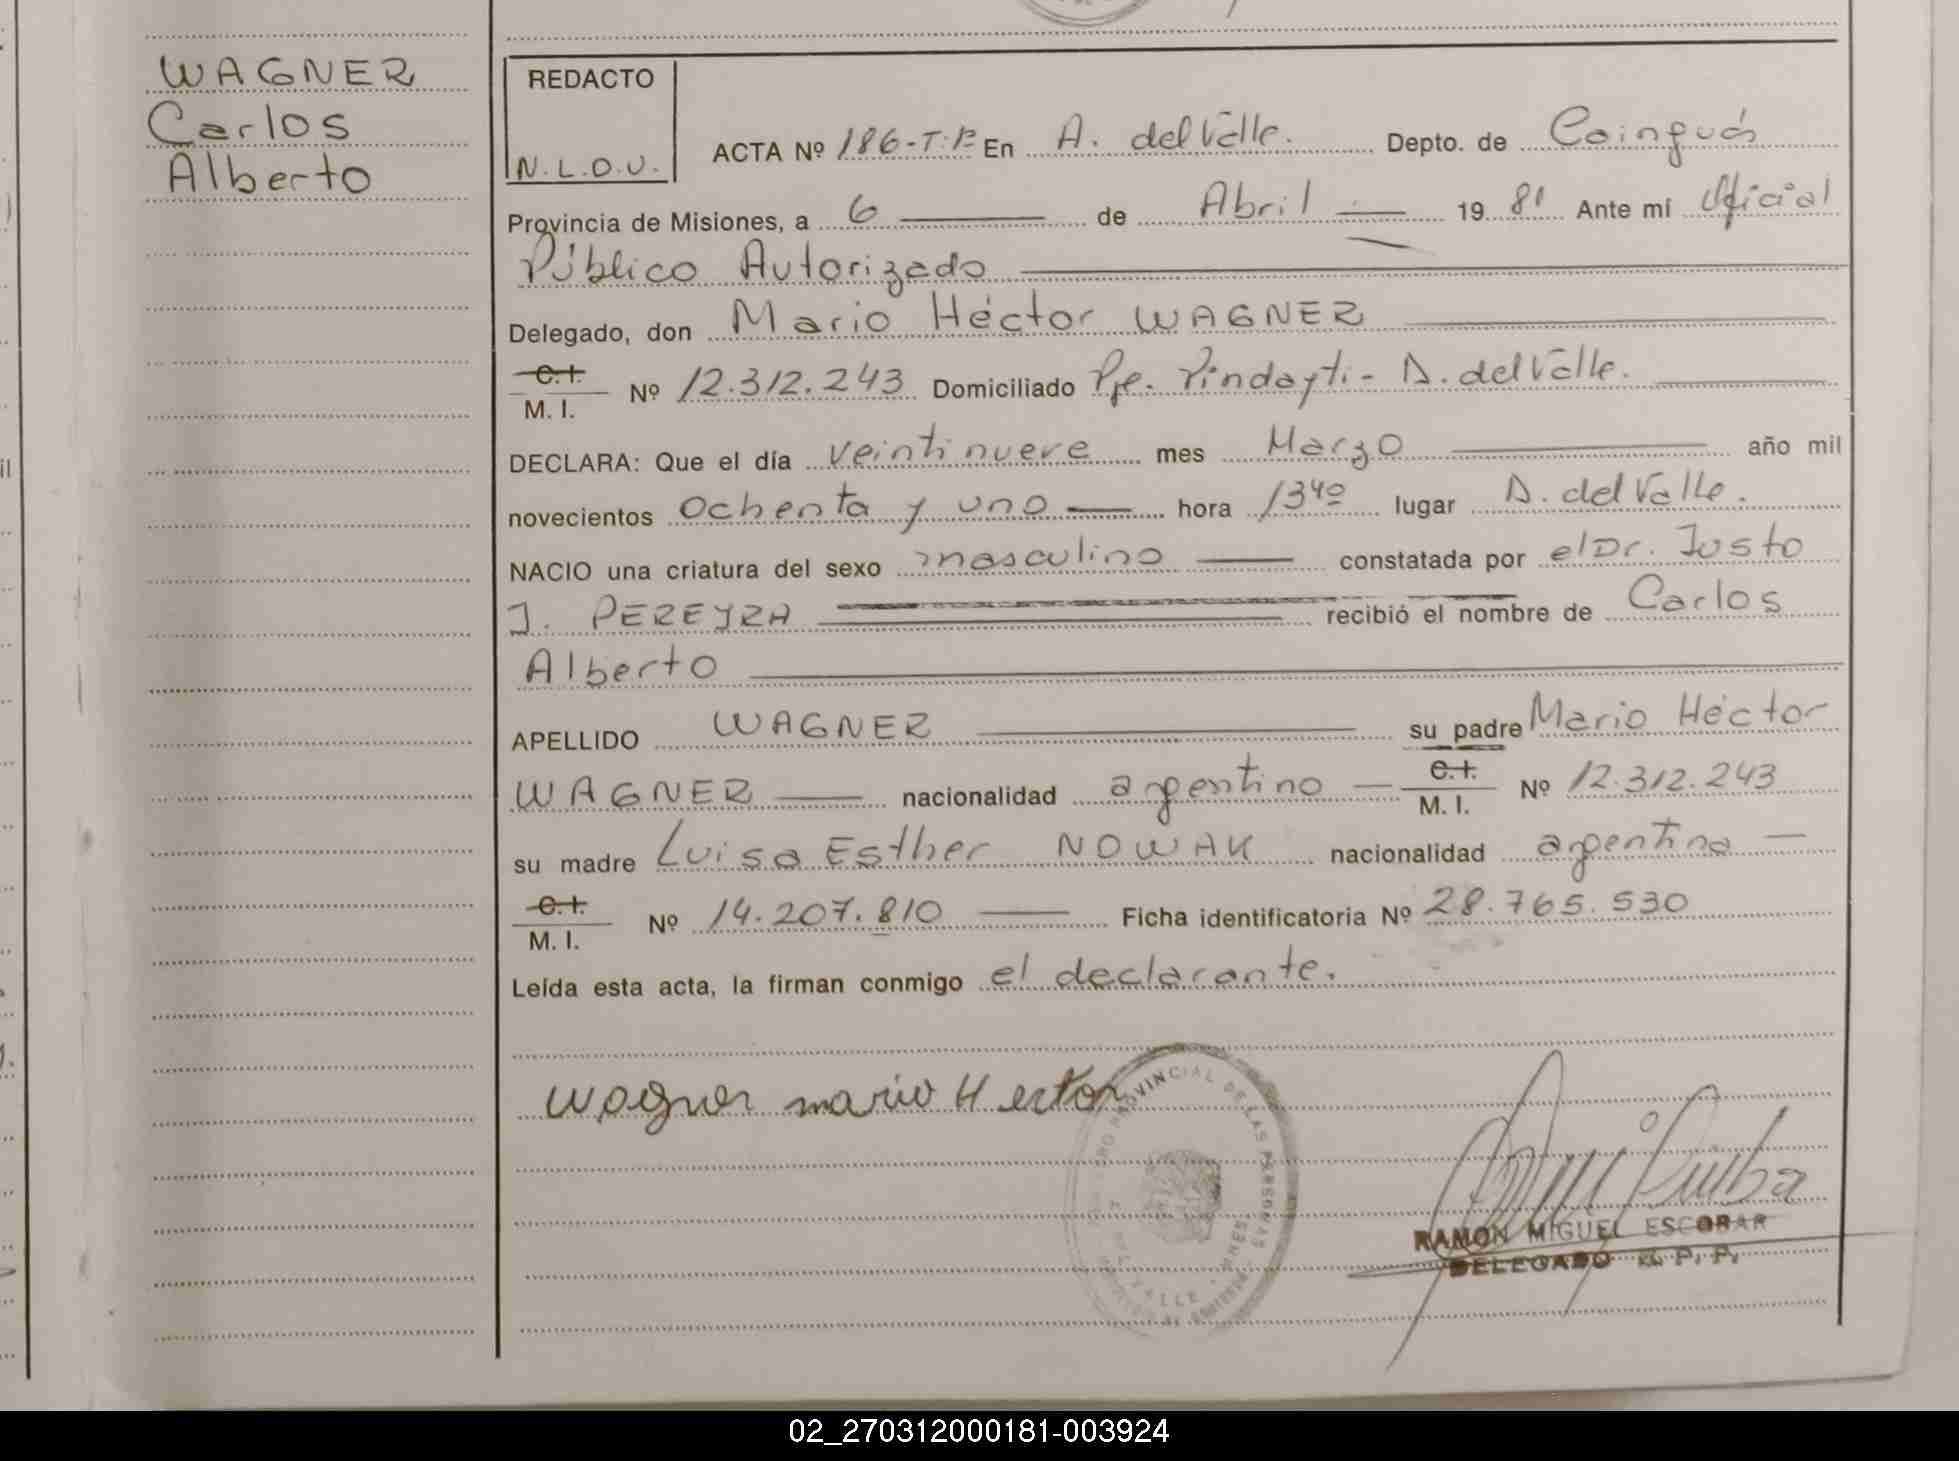 WAGNER
Carlos
Alberto
REDACTO
N.L.D.U.
ACTA Nº 186-T.I- En A. del Valle. Depto. de Cainguás
Provincia de Misiones, a 6 de Abril 19 81 Ante mí Oficial
Público Autorizado
Delegado, don Mario Héctor WAGNER
C.I.
M. I. Nº 12.312.243 Domiciliado Pje. Pindayti - A. del Valle.
DECLARA: Que el día veintinueve mes Marzo año mil
novecientos ochenta y uno hora 13⁴⁰ lugar A. del Valle.
NACIO una criatura del sexo masculino constatada por el Dr. Justo
J. PEREYRA recibió el nombre de Carlos
Alberto
APELLIDO WAGNER su padre Mario Héctor
WAGNER nacionalidad argentino C.I. M. I. Nº 12.312.243
su madre Luisa Esther NOWAK nacionalidad argentina
C.I.
M. I. Nº 14.207.810 Ficha identificatoria Nº 28.765.530
Leída esta acta, la firman conmigo el declarante.
Wagner mario Hector
PROVINCIAL DE LAS PERSONAS
RAMON MIGUEL ESCOBAR
DELEGADO R. P. P.
02_270312000181-003924